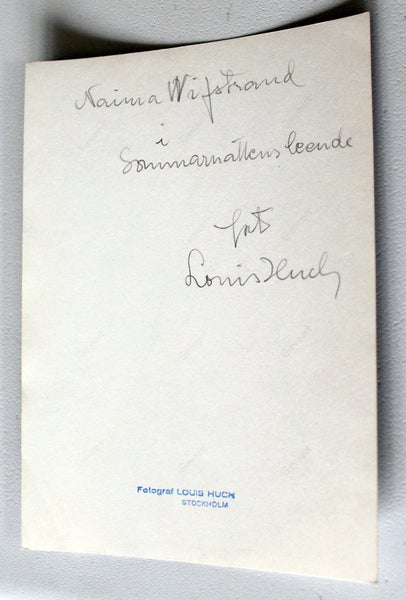 Naima Wifstrand
i
Sommarnattens leende
foto
Louis Huch
Fotograf LOUIS HUCH
STOCKHOLM